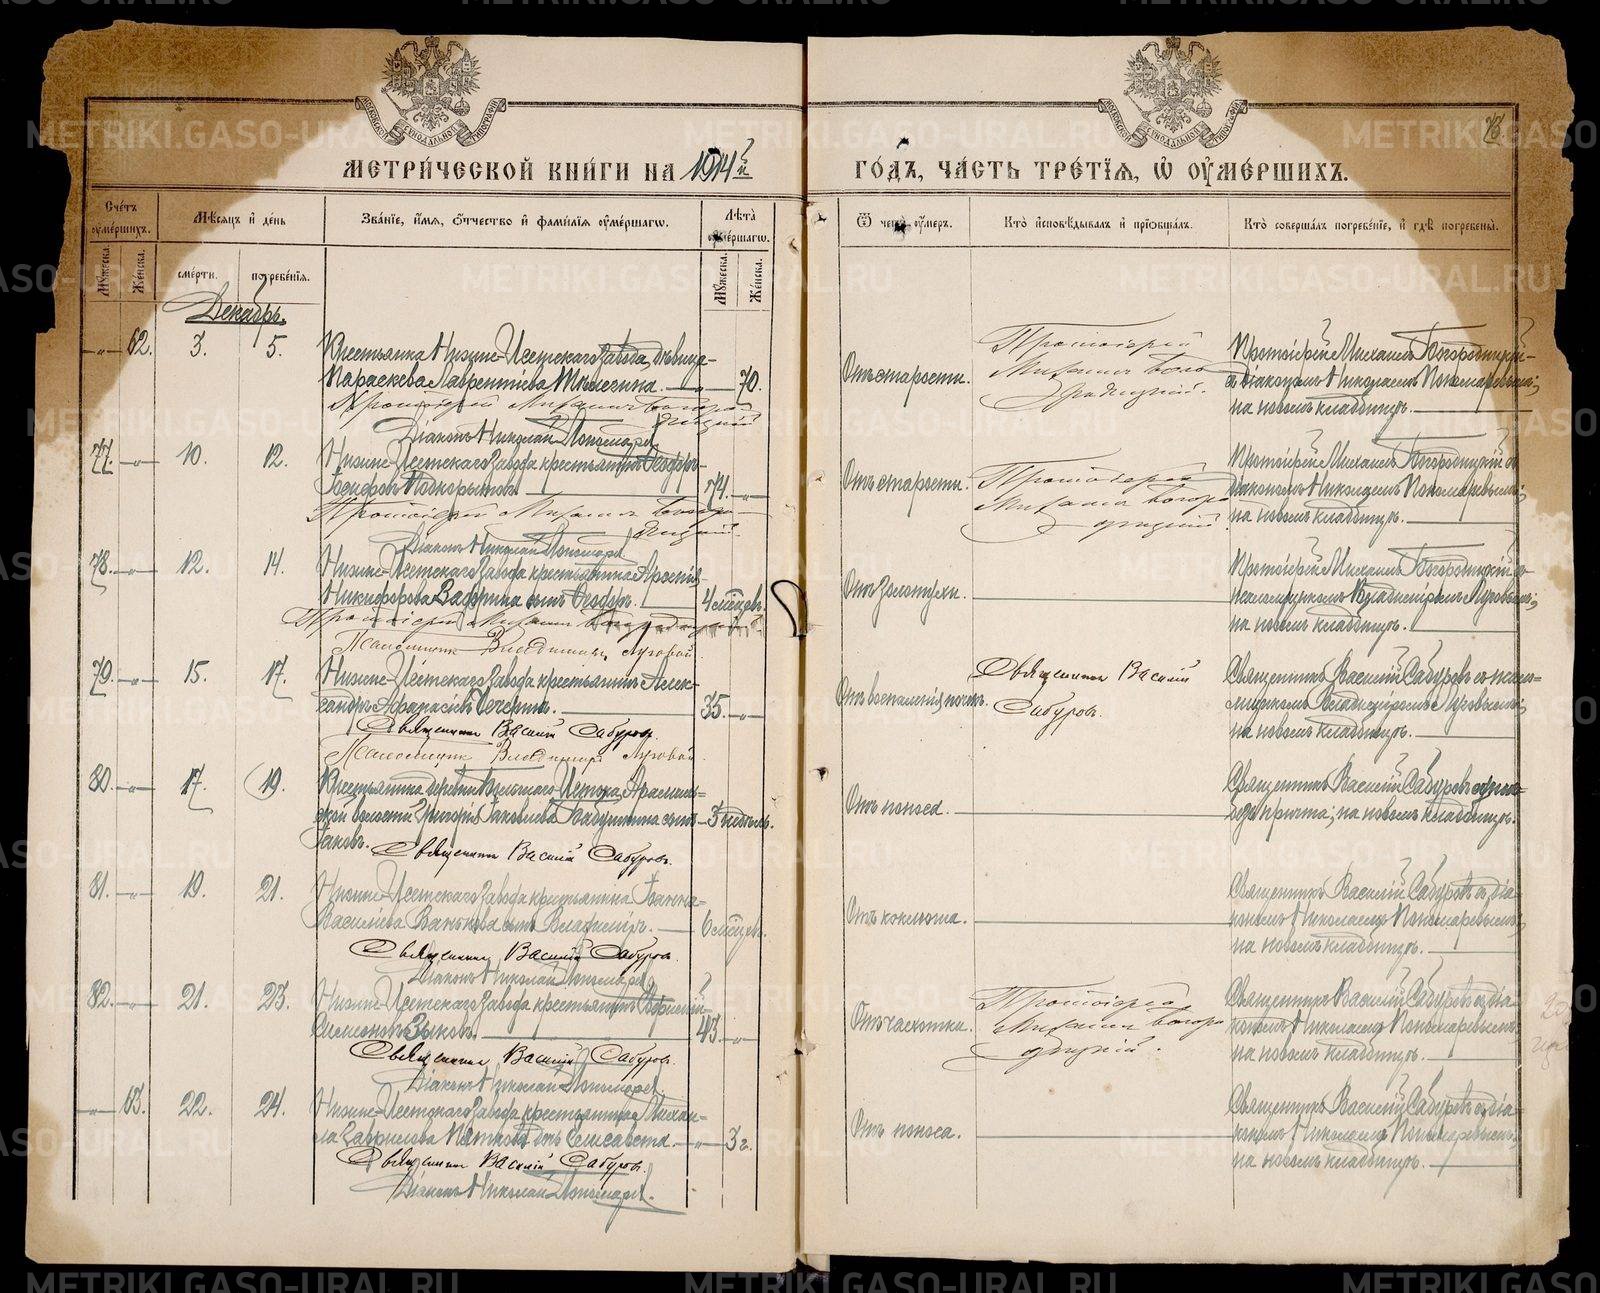 МЕТРИ́ЧЕСКОЙ КНИ́ГИ НА 1914 й
ГО́ДЪ, ЧА́СТЬ ТРЕ́ТІѦ, Ѡ҆ ОУ҆МЕ́РШИХЪ.
76.
Сче́тъ оумершихъ.
Мѣ́сяцъ и҆ де́нь
Зва́нїе, и҆́мѧ, ѻ҆́тчество и҆ фами́лїѧ оу҆ме́ршагѡ.
Лѣ́та оумершагѡ.
Ѿ чегѡ̀ оу҆́меръ.
Кто̀ и҆сповѣ́дывалъ и҆ прїѡбща́лъ.
Кто̀ соверша́лъ погребе́нїе, и҆ гдѣ̀ погребены̀.
Мꙋ́жеска.
Же́нска.
сме́рти.
погребе́нїѧ.
Мꙋ́жеска.
Же́нска.
Декабрь.
62. 3. 5. Крестьянка Нижне-Исетскаго завода, дѣвица
Параскева Лаврентіева 70.
Протоіерей Михаилъ Богородицкій
Діаконъ Николай Пономарев
Отъ старости.
Протоіерей
Михаилъ Богородицкій.
Протоіерей Михаилъ Богородицкій
съ діакономъ Николаемъ Пономаревымъ;
на новомъ кладбищѣ.
77. 10. 12. Нижне-Исетскаго завода крестьянинъ Ѳеодоръ
Подкорытовъ 74.
Протоіерей Михаилъ Богородицкій.
Діаконъ Николай Пономарев
Отъ старости.
Протоіерей
Михаилъ Богородицкій
Протоіерей Михаилъ Богородицкій съ
діакономъ Николаемъ Пономаревымъ;
на новомъ кладбищѣ.
78. 12. 14. Нижне-Исетскаго завода крестьянина Арсенія
Никифорова сынъ Ѳеодоръ. 4 мѣсцев.
Протоіерей Михаилъ Богородицкій
Псаломщик Владимиръ Луговой.
Отъ золотухи.
Протоіерей Михаилъ Богородицкій съ
псаломщикомъ Владиміромъ Луговымъ;
на новомъ кладбищѣ.
79. 15. 17. Нижне-Исетскаго завода крестьянинъ Алек-
сандръ Афанасіевъ 35.
Священникъ Василій Сабуровъ.
Псаломщик Владимир Луговой.
Отъ воспаленія почек.
Священникъ Василій
Сабуровъ.
Священникъ Василій Сабуровъ съ псало-
мщикомъ Владиміромъ Луговымъ;
на новомъ кладбищѣ.
80. 17. 19. Крестьянина деревни Истока, Арамиль-
ской волости Григорія Іаковлева Бабушкина сынъ 3 недѣль.
Іаковъ.
Священникъ Василій Сабуровъ.
Отъ поноса.
Священникъ Василій Сабуровъ
причта; на новомъ кладбищѣ.
81. 19. 21. Нижне-Исетскаго завода крестьянина Іоанна
Василіева Ванькова сынъ Владиміръ. 6 мѣсцев.
Священникъ Василій Сабуровъ.
Діаконъ Николай Пономарев
Отъ коклюша.
Священникъ Василій Сабуровъ съ діа-
кономъ Николаемъ Пономаревымъ;
на новомъ кладбищѣ.
82. 21. 23. Нижне-Исетскаго завода крестьянинъ
Симеоновъ Зыковъ. 43.
Священникъ Василій Сабуровъ.
Діаконъ Николай Пономарев
Отъ чахотки.
Протоіерей
Михаилъ Богородицкій.
Священникъ Василій Сабуровъ съ діа-
кономъ Николаемъ Пономаревымъ;
на новомъ кладбищѣ.
63. 22. 24. Нижне-Исетскаго завода крестьянина Михаи-
ла Гаврилова дочь Елисавета. 3 г.
Священникъ Василій Сабуровъ.
Діаконъ Николай Пономарев.
Отъ поноса.
Священникъ Василій Сабуровъ съ діа-
кономъ Николаемъ Пономаревымъ;
на новомъ кладбищѣ.
METRIKI.GASO-URAL.RU